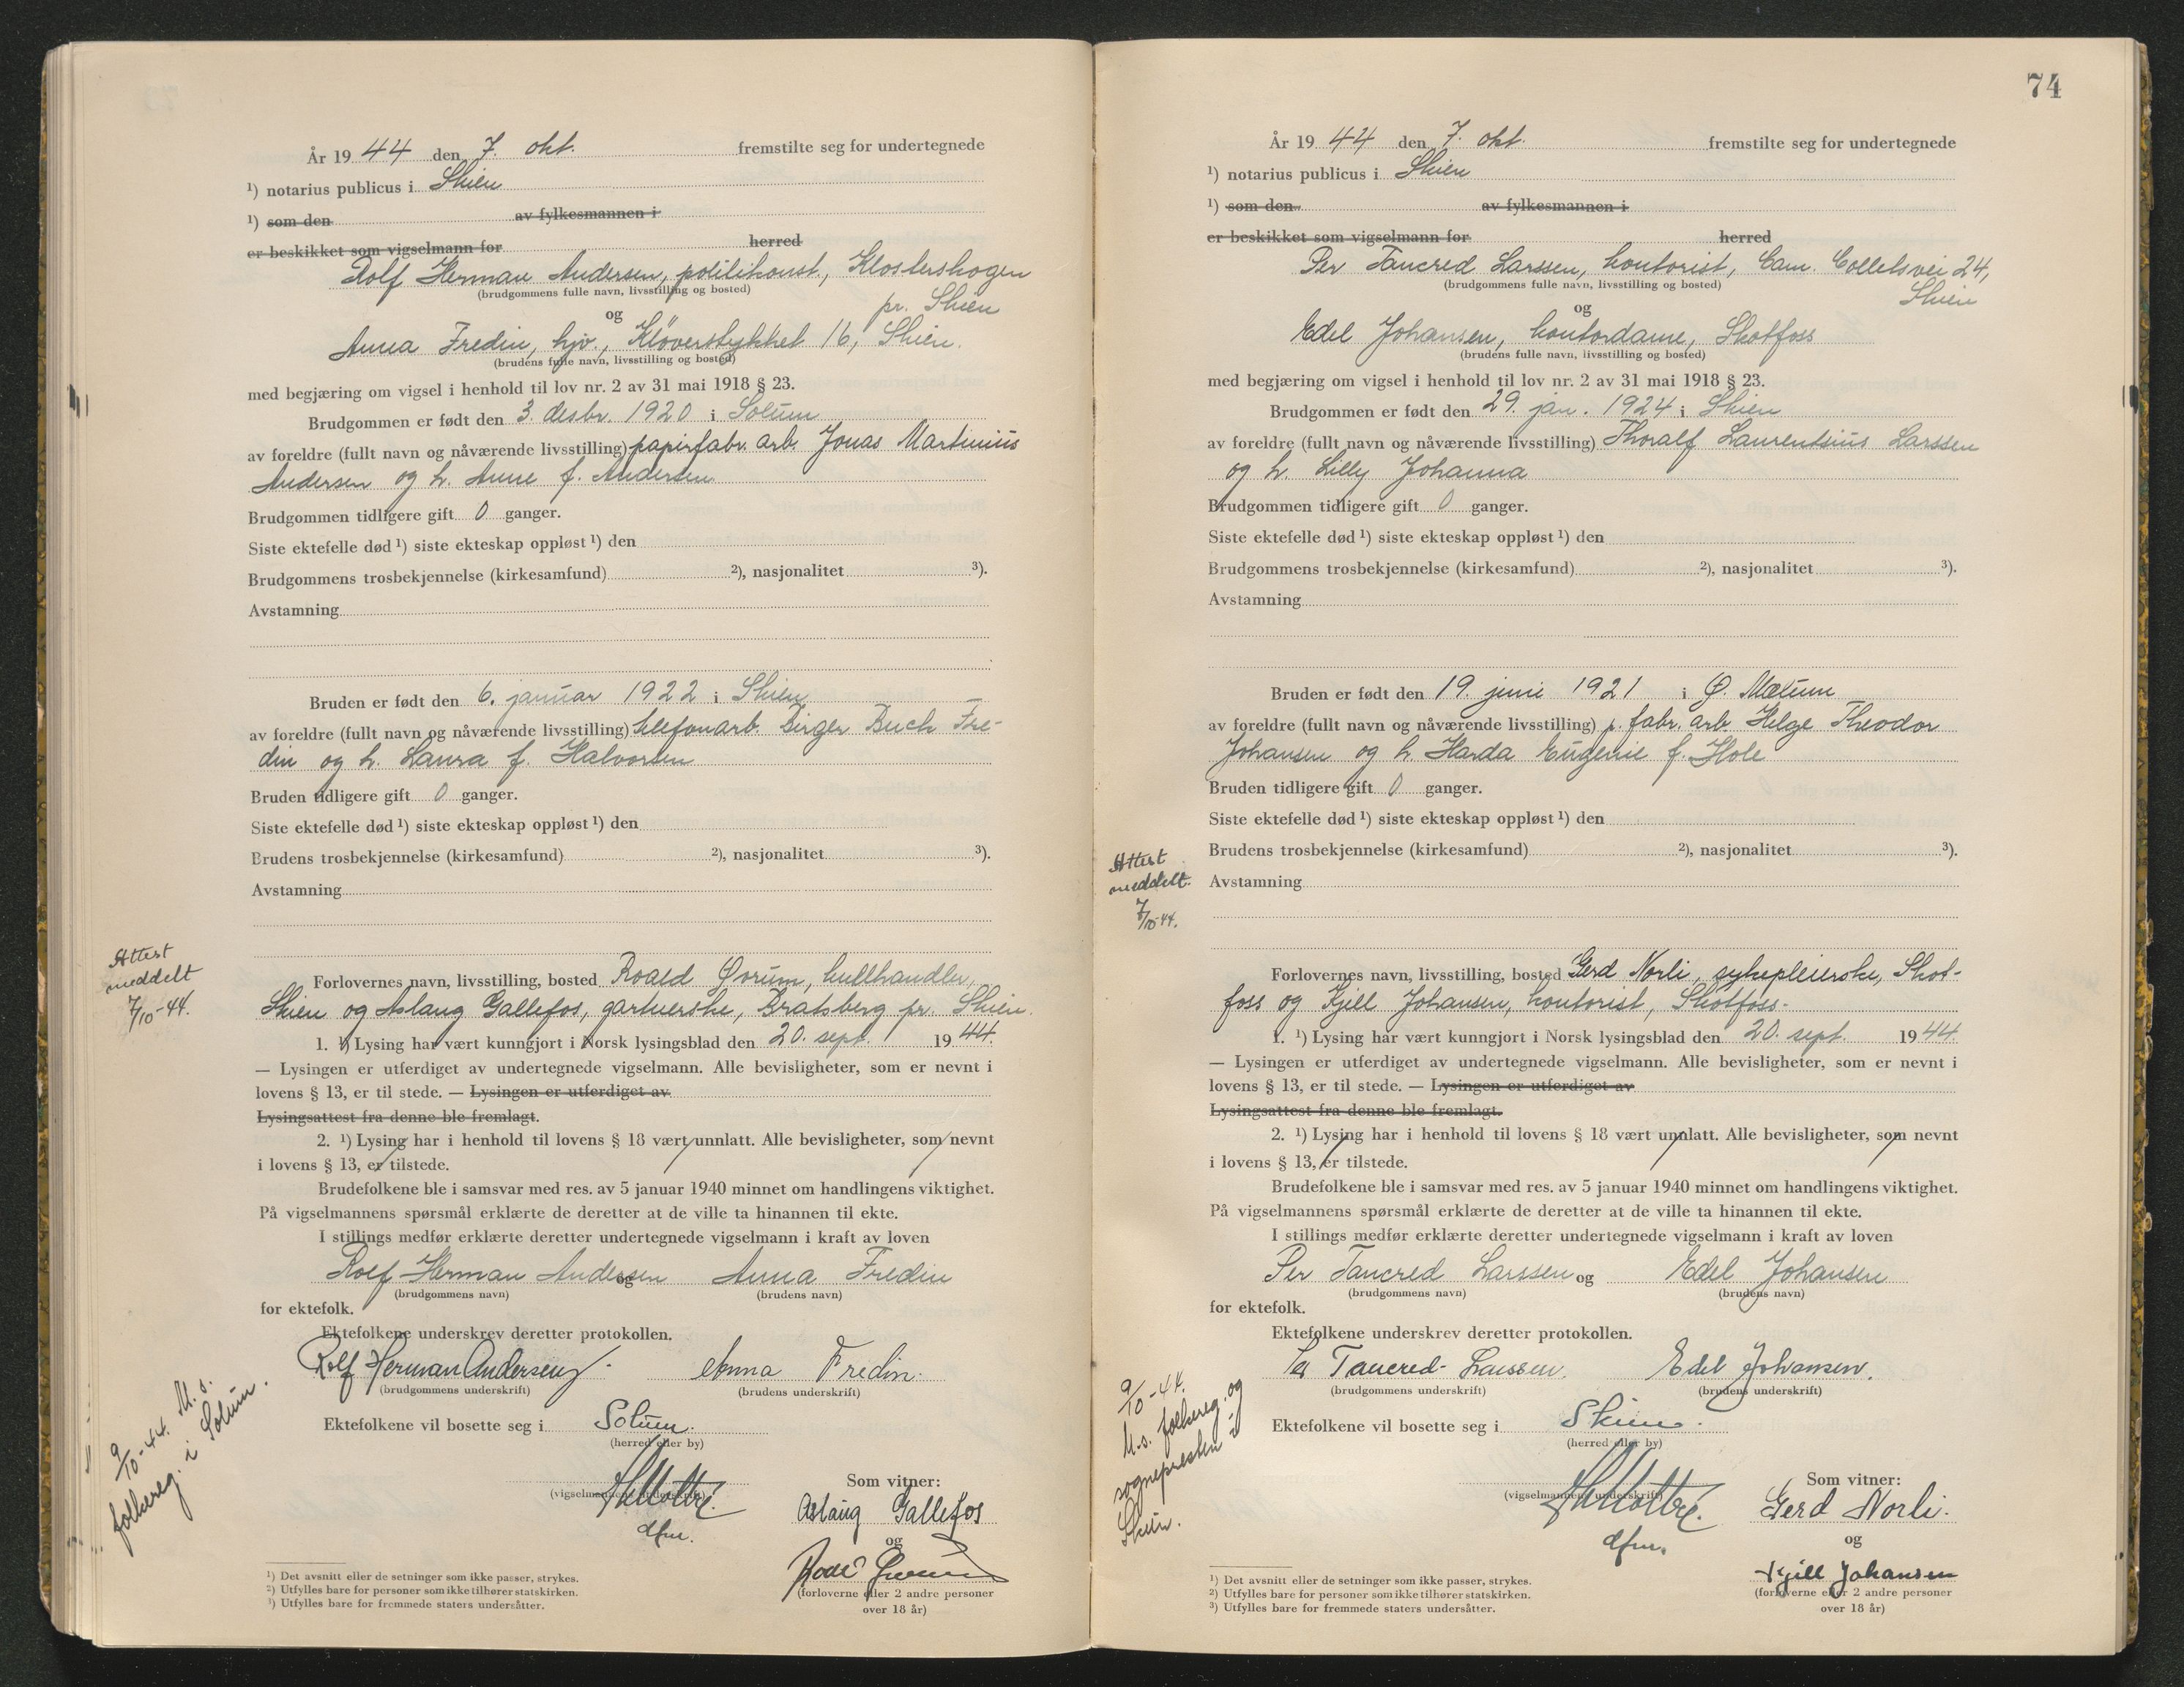 År 1944 den 7. okt. fremstilte seg for undertegnede
¹) notarius publicus i Skien
¹) som den av fylkesmannen i
er beskikket som vigselmann for herred
Rolf Herman Andersen, politikonst., Klosterskogen
(brudgommens fulle navn, livsstilling og bosted)
pr. Skien
og
Anna Fredin, hjv., Kløverstykket 16, Skien.
(brudens fulle navn, livsstilling og bosted)
med begjæring om vigsel i henhold til lov nr. 2 av 31 mai 1918 § 23.
Brudgommen er født den 3. desbr. 1920 i Solum
av foreldre (fullt navn og nåværende livsstilling) papirfabr. arb. Jonas Martinius
Andersen og h. Anne f. Andersen.
Brudgommen tidligere gift 0 ganger.
Siste ektefelle død ¹) siste ekteskap oppløst ¹) den
Brudgommens trosbekjennelse (kirkesamfund) ²), nasjonalitet ³).
Avstamning
Bruden er født den 6. januar 1922 i Skien
av foreldre (fullt navn og nåværende livsstilling) telefonarb. Birger Buch Fre-
din og h. Laura f. Halvorsen
Bruden tidligere gift 0 ganger.
Siste ektefelle død ¹) siste ekteskap oppløst ¹) den
Brudens trosbekjennelse (kirkesamfund) ²), nasjonalitet ³).
Avstamning
Attest
meddelt
7/10-44.
Forlovernes navn, livsstilling, bosted Roald Qvrum, kullhandler,
Skien og Aslaug Gallefos, gartnerske, Bratsberg pr. Skien.
1. ¹) Lysing har vært kunngjort i Norsk lysingsblad den 20. sept. 1944.
— Lysingen er utferdiget av undertegnede vigselmann. Alle bevisligheter, som er nevnt i
lovens § 13, er til stede. — Lysingen er utferdiget av
Lysingsattest fra denne ble fremlagt.
2. ¹) Lysing har i henhold til lovens § 18 vært unnlatt. Alle bevisligheter, som nevnt
i lovens § 13, er tilstede.
Brudefolkene ble i samsvar med res. av 5 januar 1940 minnet om handlingens viktighet.
På vigselmannens spørsmål erklærte de deretter at de ville ta hinannen til ekte.
I stillings medfør erklærte deretter undertegnede vigselmann i kraft av loven
Rolf Herman Andersen og Anna Fredin
(brudgommens navn) (brudens navn)
for ektefolk.
Ektefolkene underskrev deretter protokollen.
Rolf Herman Andersen. Anna Fredin.
(brudgommens underskrift) (brudens underskrift)
9/10-44. M.s.
folkereg. i Solum.
Ektefolkene vil bosette seg i Solum.
(herred eller by)
(vigselmannens underskrift)
dfm.
Som vitner:
Aslaug Gallefos
og
(forloverne eller 2 andre personer
over 18 år)
¹) Det avsnitt eller de setninger som ikke passer, strykes.
²) Utfylles bare for personer som ikke tilhører statskirken.
³) Utfylles bare for fremmede staters undersåtter.
74
År 1944 den 7. okt. fremstilte seg for undertegnede
¹) notarius publicus i Skien
¹) som den av fylkesmannen i
er beskikket som vigselmann for herred
Per Tancred Larssen, kontorist, Cam. Colletsvei 24,
(brudgommens fulle navn, livsstilling og bosted)
Skien
og
Edel Johansen, kontordame, Skotfoss
(brudens fulle navn, livsstilling og bosted)
med begjæring om vigsel i henhold til lov nr. 2 av 31 mai 1918 § 23.
Brudgommen er født den 29. jan. 1924 i Skien
av foreldre (fullt navn og nåværende livsstilling) Thoralf Laurentsius Larssen
og h. Lilly Johanna
Brudgommen tidligere gift 0 ganger.
Siste ektefelle død ¹) siste ekteskap oppløst ¹) den
Brudgommens trosbekjennelse (kirkesamfund) ²), nasjonalitet ³).
Avstamning
Bruden er født den 19. juni 1921 i Ø. Mælum
av foreldre (fullt navn og nåværende livsstilling) p. fabr. arb. Helge Theodor
Johansen og h. Harda Eugenie f. Hole
Bruden tidligere gift 0 ganger.
Siste ektefelle død ¹) siste ekteskap oppløst ¹) den
Brudens trosbekjennelse (kirkesamfund) ²), nasjonalitet ³).
Avstamning
Attest
meddelt.
7/10-44.
Forlovernes navn, livsstilling, bosted Gerd Norli, sykepleierske, Skot-
foss og Kjell Johansen, kontorist, Skotfoss.
1. ¹) Lysing har vært kunngjort i Norsk lysingsblad den 20. sept. 1944.
— Lysingen er utferdiget av undertegnede vigselmann. Alle bevisligheter, som er nevnt i
lovens § 13, er til stede. — Lysingen er utferdiget av
Lysingsattest fra denne ble fremlagt.
2. ¹) Lysing har i henhold til lovens § 18 vært unnlatt. Alle bevisligheter, som nevnt
i lovens § 13, er tilstede.
Brudefolkene ble i samsvar med res. av 5 januar 1940 minnet om handlingens viktighet.
På vigselmannens spørsmål erklærte de deretter at de ville ta hinannen til ekte.
I stillings medfør erklærte deretter undertegnede vigselmann i kraft av loven
Per Tancred Larssen og Edel Johansen
(brudgommens navn) (brudens navn)
for ektefolk.
Ektefolkene underskrev deretter protokollen.
Per Tancred Larssen. Edel Johansen.
(brudgommens underskrift) (brudens underskrift)
9/10-44.
M.s. folkereg. og
sognepresten i
Skien.
Ektefolkene vil bosette seg i Skien.
(herred eller by)
(vigselmannens underskrift)
dfm.
Som vitner:
Gerd Norli.
og
Kjell Johansen
(forloverne eller 2 andre personer
over 18 år)
¹) Det avsnitt eller de setninger som ikke passer, strykes.
²) Utfylles bare for personer som ikke tilhører statskirken.
³) Utfylles bare for fremmede staters undersåtter.